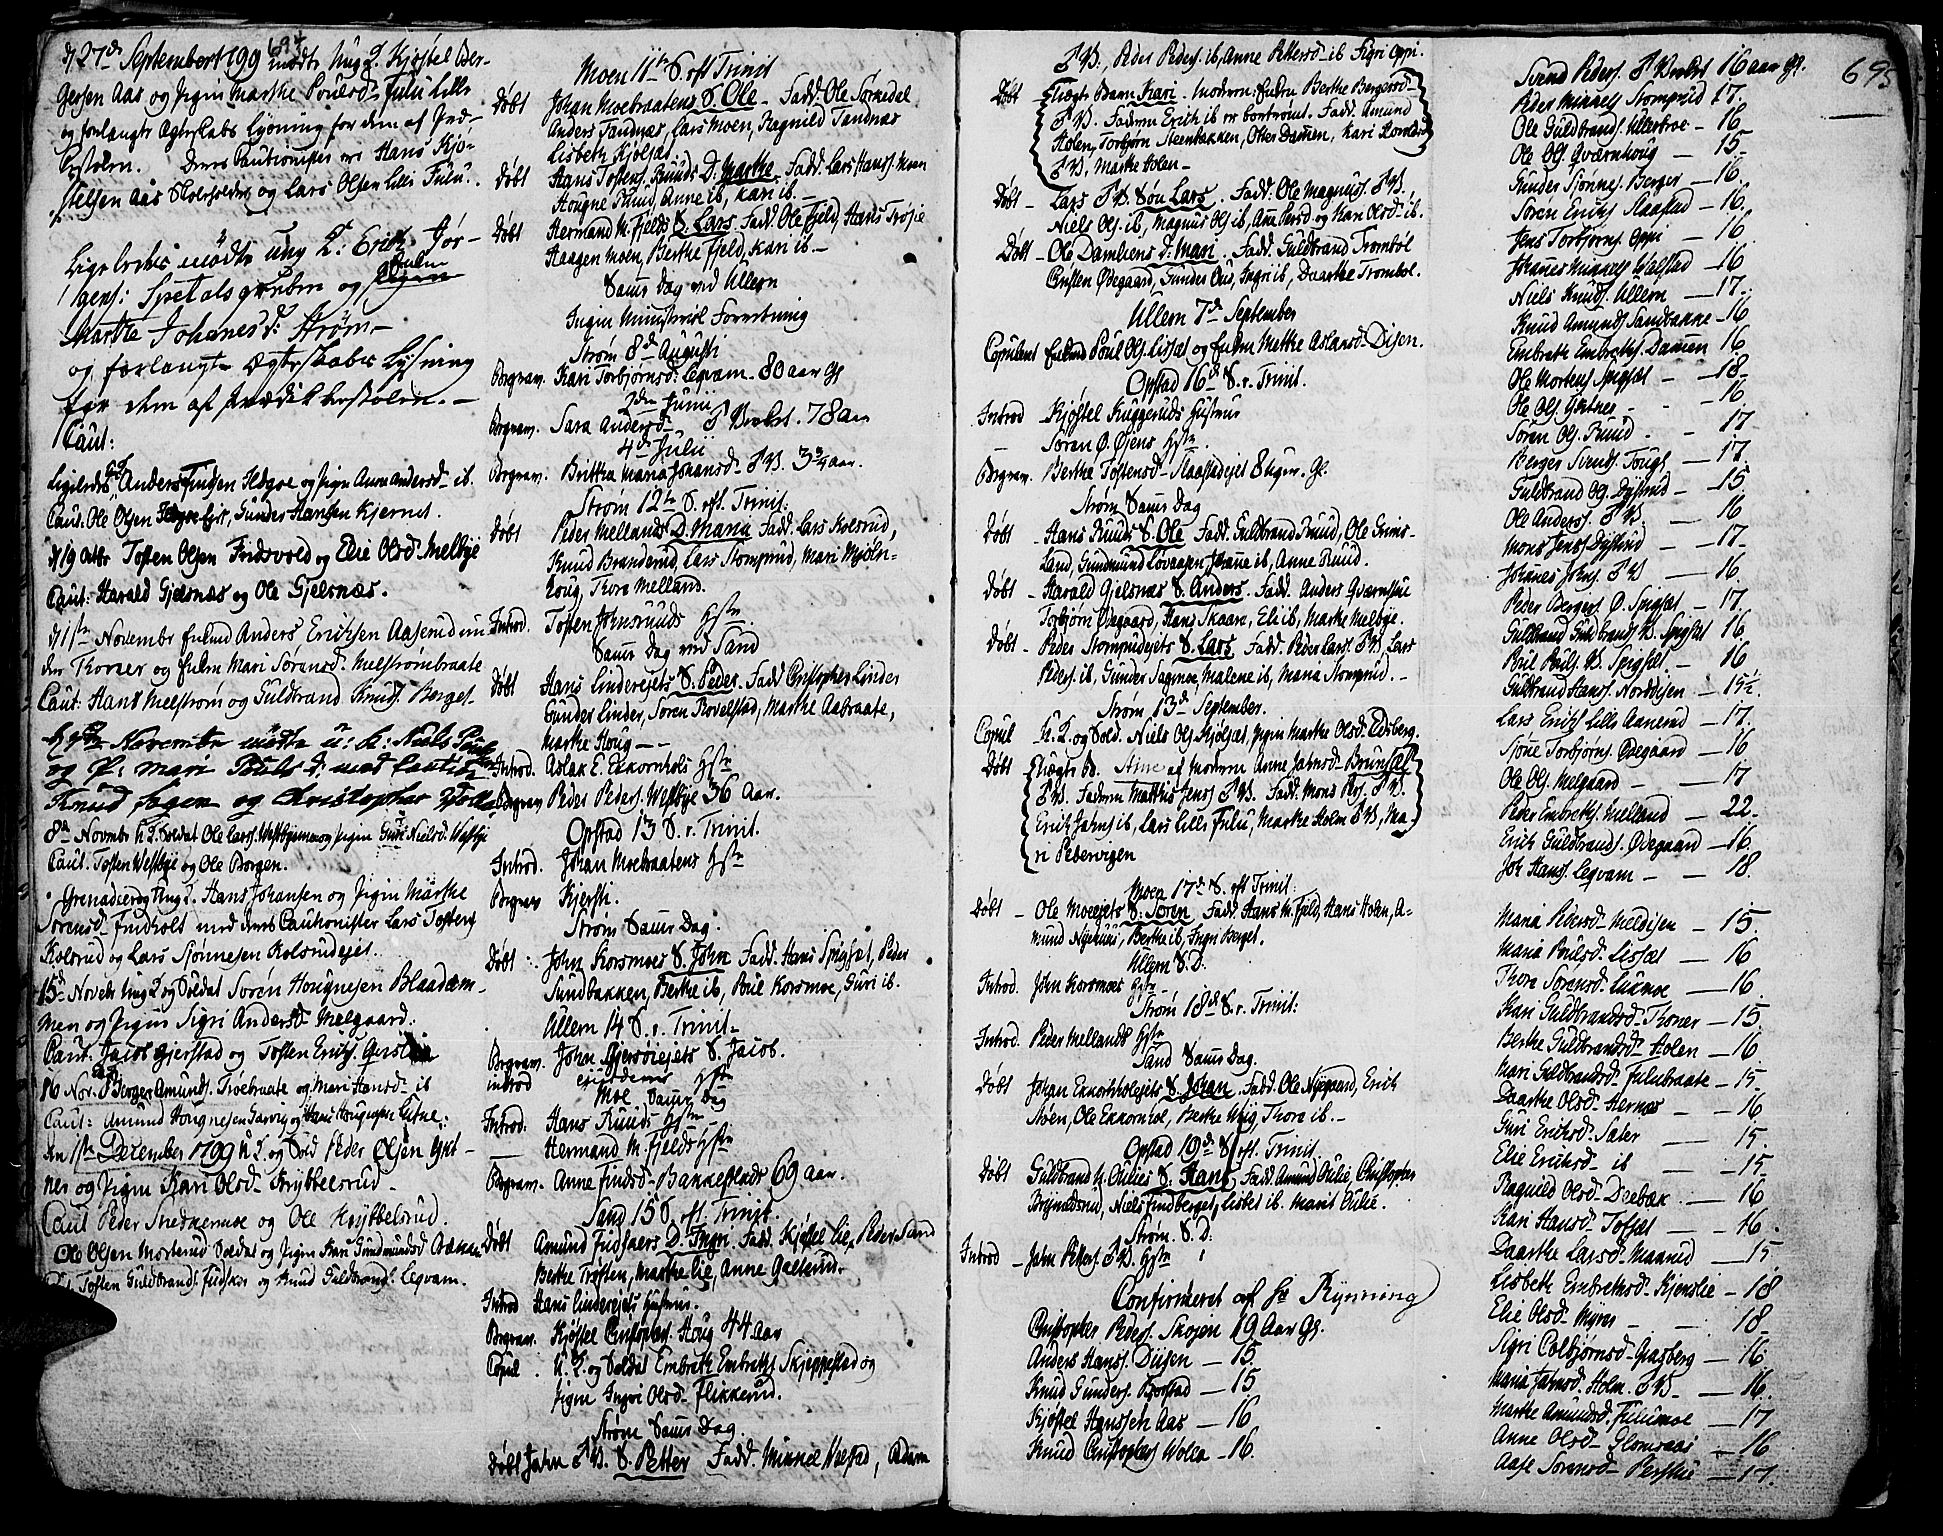 694
d 27de Septembr 1799 mødte Ung K. Kjøstel Ber-
gersen Aas og Pigen Marthe Poulsd. Fulu Lille
og forlangte Ægteskabs Lysning for dem af Præd-
Hans Kjø-
stelsen Aas Skoleholder og Lars Olsen Lille Fulu.
Ligeledes mødte ung K: Erich Jør-
gens: Spetalsgruben og
Marthe Johanesd: Strøm
og forlangte Ægteskabs Lysning
for dem af Prædikkestolen.
Caut:
Ligeledes Anders Findsen og Pigen Anne Andersd. ib.
Caut. Ole Olsen Gunder Hansen Kjernes.
d 19 Octbr Tosten Olsen Fridsvold og Elie Olsd. Melbye
Caut: Harald Gjelsnæs og Ole Gjelsnæs.
d 1ste Novembr Anders Erichsen Aaserud un-
der Thoner og Mari Sørensd. Melstrømbraate
Caut: Hans Melstrøm og Guldbrand Knuds. Berget
Novembr mødte u: K: Niels
og P: Mari Pouls d: med Caution
Knud Fagen og Christopher
8de Novembr u. K. Soldat Ole Larss. og Pigen Guri Nielsd. Westbye
Caut. Tosten Westbye og Ole Borgen.
Grenadeer og Ung K. Hans Johansen og Pigen Marthe
Sørensd. Findholt med deres Cautionister Lars Tostens
Kolsrud og Lars Sjønnesen Kolsrudejet.
15de Novebr Ung K. og Soldat Søren Hougnesen Blaadam-
men og Pigen Sigri Andersd. Melgaard.
Caut. Jacob Gjerstad og Tosten Erichs.
16 Nov. Berger Amunds. Træbraate og Mari Hansd. ib
Caut: Amund Hougnesen
den 1ste December 1799 u. K. og Sold. Peder Olsen Gjet-
ner og Pigen Kari Olsd. Knybbelsrud
Caut Peder Snedkermoe og Ole Knybbelsrud.
Ole Olsen Morterud Soldat og Pigen Kari Gundmundsd.
Caut. Tosten Guldbrands. og Knud Guldbrands. Leqvam.
Moen 11te S. eft. Trinit
Døbt Johan Moebraatens S. Ole. Fadd. Ole Sørkedal
Anders Tandnæs, Lars Moen, Ragnild Tandnæs
Lisbeth Kjølsæt.
Døbt Hans Tostens. Ruuds D. Marthe. Fadd. Lars Hanss. Moen
Hougne Ruud, Anne ib, Kari ib.
Døbt Hermand M. Fjelds S. Lars. Fadd. Ole Fjeld, Hans Trosie
Haagen Moen, Berthe Fjeld, Kari ib.
Samme Dag ved Ullern
Ingen Ministeriel Forretning
Strøm 8de Augusti
Begrav. Kari Torbjørnsd. Leqvam. 80 aar Gl
2den Junii
Begrav. Sara Andersd. 78 Aar
4de Julii
Begrav. Brittha Maria Johansd. P.V. 3 3/4 aar.
Strøm 12te S. eft. Trinit.
Døbt Peder Mellands D. Maria. Fadd. Lars Kolsrud,
Knud Branderud, Lars Stomprud, Mari Mjøln-
houg, Thore Melland.
Introd. Tosten Johnsruuds Hstr.
Samme Dag ved Sand
Døbt Hans Linderejets S. Peder. Fadd Christopher Linder
Gunder Linder, Søren Bovelstad, Marthe Aabraate,
Marthe Houg
Introd. Aslak E. Ekkornhols Hstr
Begrav. Peder Peders. Westbye 36 Aar.
Opstad 13 S. e. Trinit.
Introd. Johan Moebraatens Hstr
Begrav. Kjersti.
Strøm Samme Dag.
Døbt John Korsmoes S. John Fadd. Hans Spigsæt, Peder
Sundbakken, Berthe ib, Poul Korsmoe, Guri ib.
Ullern 14 S. e. Trinit
Begrav. John Gjersøiejets S. Jacob.
introd Hstr
Moe Samme Dag
Introd. Hans Ruuds Hstr
Hermand M. Fjelds Hstr
Begrav. Anne Findsd. Bakkestads 69 aar.
Sand 15 S. eft. Trinit.
Døbt Amund Fudsaers D. Ingri. Fadd. Kjøstel Lie, Peder Sand
Berthe Trøften, Marthe Lie, Anne Galterud.
Introd Hans Linderejets Hustrue.
Begrav. Kjøstel Christophers. Houg 44 Aar
Copul. u. K. og Soldat Embreth Embreths. Skjeppestad og
Pigen Ingri Olsd. Flikkerud.
Strøm Samme Dag.
Døbt Jahn P.V. S. Petter Fadd. Mikkel Walstad, Adam
P.V., Peder Peders. ib, Anne Pettersd. ib Sigri Oppi.
Døbt Uægte Barn Kari. Moderen Berthe Bergersd.
P.V. Faderen Erich ib er bortrømt. Fadd. Amund
Holen, Torbjørn Steenbakken, Otter Dammen, Kari
P.V. Marthe Holen
Døbt Lars P.V. Søn Lars. Fadd. Ole Magnus. P.V.,
Niels Ols. ib, Magnus Ols ib, Ane Persd og Kari Olsd. ib.
Døbt Ole Damliens D. Mari. Fadd. Guldbrand Trombøl
Christen Ødegaard, Gunder Oud, Ingri ib, Daarthe Trombøl.
Ullern 7de September
Copuleret Poul Ols. Lissæt og Methe Aslansd. Disen.
Opstad 16de S. e. Trinit.
Introd Kjøstel Kuggeruds Hustrue
Søren Ø. Øiens Hstr.
Begrav. Berthe Tostensd. Slaastadejet 8 Uger Gl.
Strøm Samme Dag
Døbt Hans Ruuds S. Ole Fadd. Guldbrand Ruud, Ole Grims-
land, Gundmund Løvaasen, Johane ib, Anne Ruud.
Døbt Harald Gjelsnæs S. Anders. Fadd. Anders
Torbjørn Ødegaard, Hans Skaare, Eli ib, Marthe Melbye.
Døbt Peder Stomprudejets S. Lars. Fadd. Peder Larss. P.V. Lars
Peders. ib, Gunder Sagmoe, Malene ib, Maria Stomprud.
Strøm 13de September.
Copul u. K. og Sold. Niels Ols. Kjølsæt, Pigen Marthe Olsd. Edsberg.
Døbt Uægte b. Aine af Moderen Anne Jahnsd. Brunsæt
P.V. Faderen Mathis Jens. P.V. Fadd. Mons Pers. P.V.
Erich Jahns ib, Lars Lille Fulu, Marthe Holm P.V., Ma-
ri Pedervigen
Moen 17de S. eft Trinit:
Døbt Ole Moeejets S. Søren. Fadd. Hans M. Fjeld, Hans Holen, A-
mund Nyehuus, Berthe ib, Ingri Berget.
Ullern S. D.
Introd. John Korsmoes Hstr
Strøm 18de S. e. Trinit:
Introd. Peder Mellands Hstr
Sand Samme Dag.
Døbt Johan Ekkornholejets S. Johan. Fadd. Ole Nygaard, Erich
Moen, Ole Ekkornhol, Berthe Thore ib.
Opstad 19de S. eft. Trinit
Døbt Guldbrand N. Oulies S. Hans, Fadd. Amund Oulie, Christopher
Niels Findberget, Lisbet ib. Marit Oulie.
Strøm. S. D:
Introd John Petters. P.V. Hstr
Confirmeret af Hr Rynning
Christopher Peders. Skogen 19 Aar Gl.
Anders Hanss. Diisen 15
Knud Gunders. Bjorstad 15
Kjøstel Hanssen Aas 16
Knud Christophers Wolla 16.
695
Svend Peders. P. Verket 16 aar Gl.
Peder Mikkels Stomprud 17.
Ole Guldbrands. Ullerbroe 16
Ole Ols. Qværnhoug 15
Gunder Sjønnes. Berger 16.
Søren Erichs Slaastad 16
Jens Torbjørns. Oppi 16
Johanes Mikkels Walstad 16
Niels Knuds. Ullern 17.
Knud Amunds Sandbakke 16
Embreth Embreths. Damen 16
Ole Mortens Spigsæt 18
Ole Ols. Gjetner 16
Søren Ols. Ruud 17
Berger Svends. Tougl 17
Guldbrand Ols. Dystrud 15
Ole Anderss. P.V. 16
Mons Jens. Dystrud 17
Johanes Johs. P.V 16
Peder Bergers. Ø. Spigsæt 17
Guldbrand Guldbrands N. Spigset 16
Poul Pouls. N. Spigset. 16
Guldbrand Hanss. Norddisen 15½.
Lars Erichs Lille Aanerud 17.
Sjøne Torbjørns. Ødegaard 16
Ole Ols. Melgaard 17
Peder Embreths. Melland 22.
Erich Guldbrands. Ødegaard 16
Joh Hans. Leqvam 18.
Maria Pedersd. Meldisen 15.
Maria Poulsd. Lissæt 16
Thore Sørensd. Lukmoe 16
Kari Guldbrandsd. Thoner 15
Berthe Guldbrandsd. Holen 16
Mari Guldbrandsd. Fulubraate 15.
Daarthe Olsd. Hernæs 16
Guri Eriksd. Sater 15.
Elie Eriksd. ib 15
Ragnild Olsd. Deebæk 16
Kari Hansd. Tofsæt 16.
Daarthe Larsd. Maanud 15
Lisbeth Embrethsd. Kjenslie 18
Elie Olsd. Myren 18
Sigri Colbjørnsd. Grasberg 16
Maria Jahnsd. Holm. P.V. 16.
Marthe Amundsd. Fulumoe 17
Anne Olsd. Glomsaas 16
Aase Sørensd. 17.